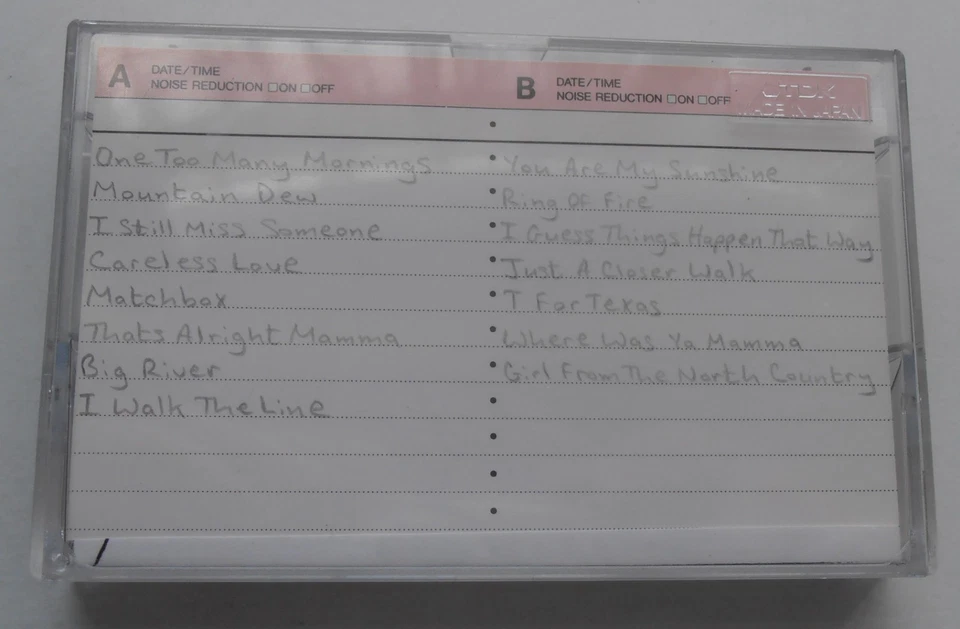 A DATE/TIME
NOISE REDUCTION □ON □OFF
One Too Many Mornings
Mountain Dew
I Still Miss Someone
Careless Love
Matchbox
Thats Alright Mamma
Big River
I Walk The Line
B DATE/TIME
NOISE REDUCTION □ON □OFF
TDK
MADE IN JAPAN
You Are My Sunshine
Ring Of Fire
I Guess Things Happen That Way
Just A Closer Walk
T For Texas
Where Was Ya Mamma
Girl From The North Country